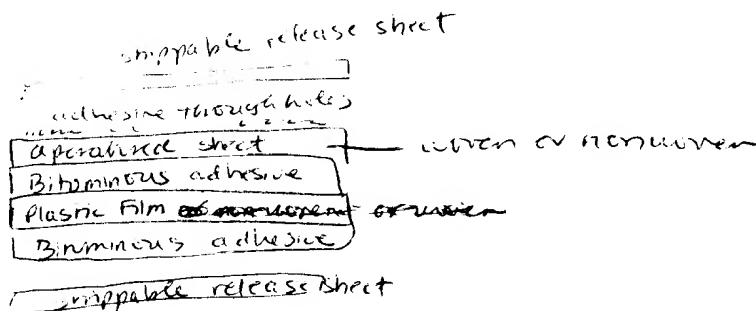 strippable release sheet
adhesive through holes
aperatured sheet — woven or nonwoven
Bituminous adhesive
Plastic Film or nonwoven or woven
Bituminous adhesive
strippable release sheet